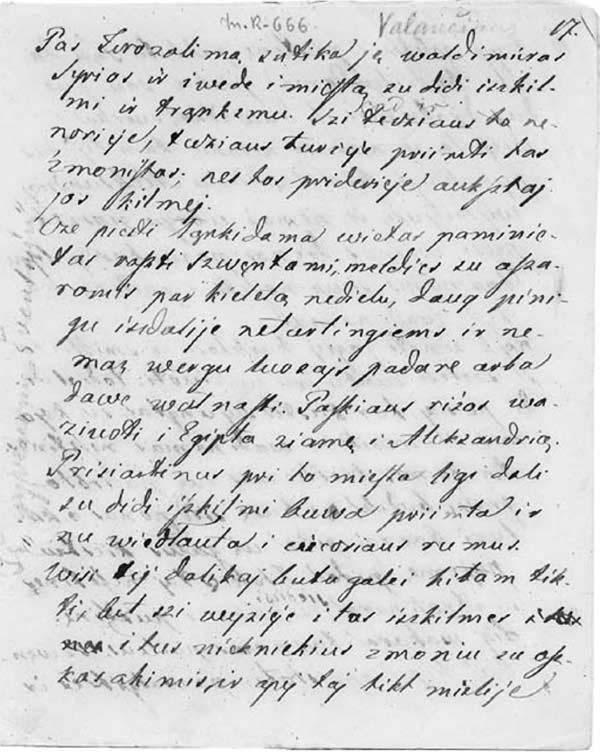 In. R-666. Valančius 17.
Pas Jerozolima sutika ję waldimieras
Syrios ir iwede i miesta su didi iszkil-
mi ir trąnksmu. Szi tecziaus to ne-
norieje, tecziaus turieje priimti tas
žmonistas; nes tos pridereje auksztaj
jos kilmej.
Oze piesti ląnkidama wietas paminie-
tas raszti szwęntami, meldies su asza-
romis par kieleta nedieliu, daug pini-
gu iszdalije neturtingiems ir ne-
maz wergu lwosajs padare arba
dawe walnasti. Paskiaus rizos wa-
ziuoti i Egipta ziamę i Aleksandrią.
Prisiartinus pri to miesta ligi dali
su didi iszkilmi buwa priimta ir
nu wiedlauta i ciecoriaus rumus.
Wisi tij dalikaj butu galei kitam tik-
ti, bet szi wejzieje i tas iszkilmes
i tus niekniekius zmoniu su asz-
karakimis, ir apy taj tikt mislije